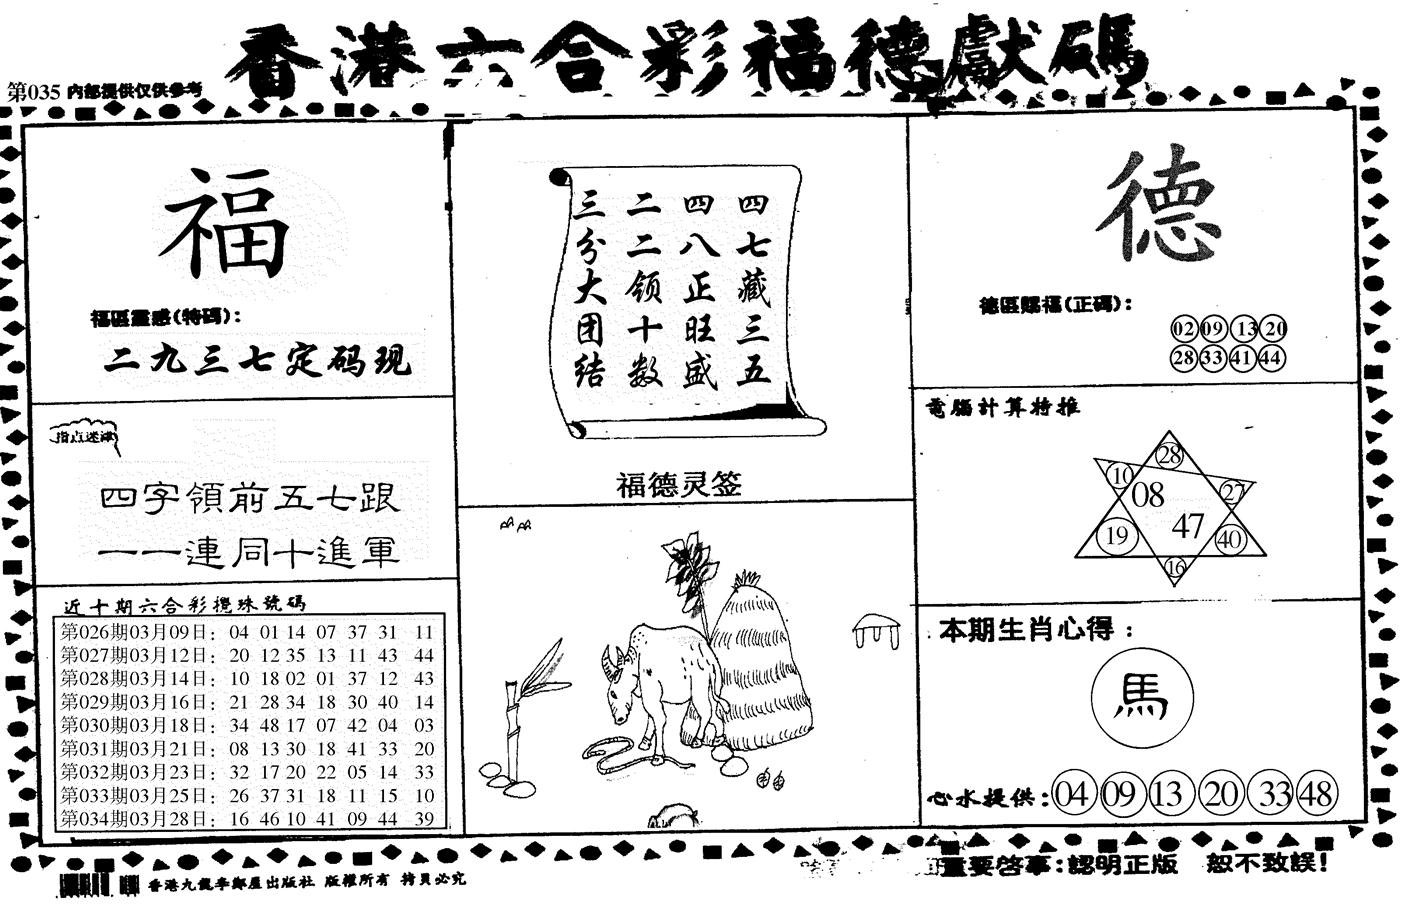 香港六合彩福德獻碼
第035 内部提供仅供参考
福
福區靈感(特碼):
二九三七定码现
指点迷津
四字領前五七跟
一一連同十進軍
近十期六合彩攪珠號碼
第026期03月09日: 04 01 14 07 37 31 11
第027期03月12日: 20 12 35 13 11 43 44
第028期03月14日: 10 18 02 01 37 12 43
第029期03月16日: 21 28 34 18 30 40 14
第030期03月18日: 34 48 17 07 42 04 03
第031期03月21日: 08 13 30 18 41 33 20
第032期03月23日: 32 17 20 22 05 14 33
第033期03月25日: 26 37 31 18 11 15 10
第034期03月28日: 16 46 10 41 09 44 39
四七藏三五
四八正旺盛
二二领十数
三分大团结
福德灵签
德
德區賜福(正碼):
02 09 13 20
28 33 41 44
電腦計算特推
28
10
27
08
47
19
40
16
本期生肖心得:
馬
心水提供: 04 09 13 20 33 48
香港九龍李鄭屋出版社 版權所有 拷貝必究
重要啓事:認明正版 恕不致誤!